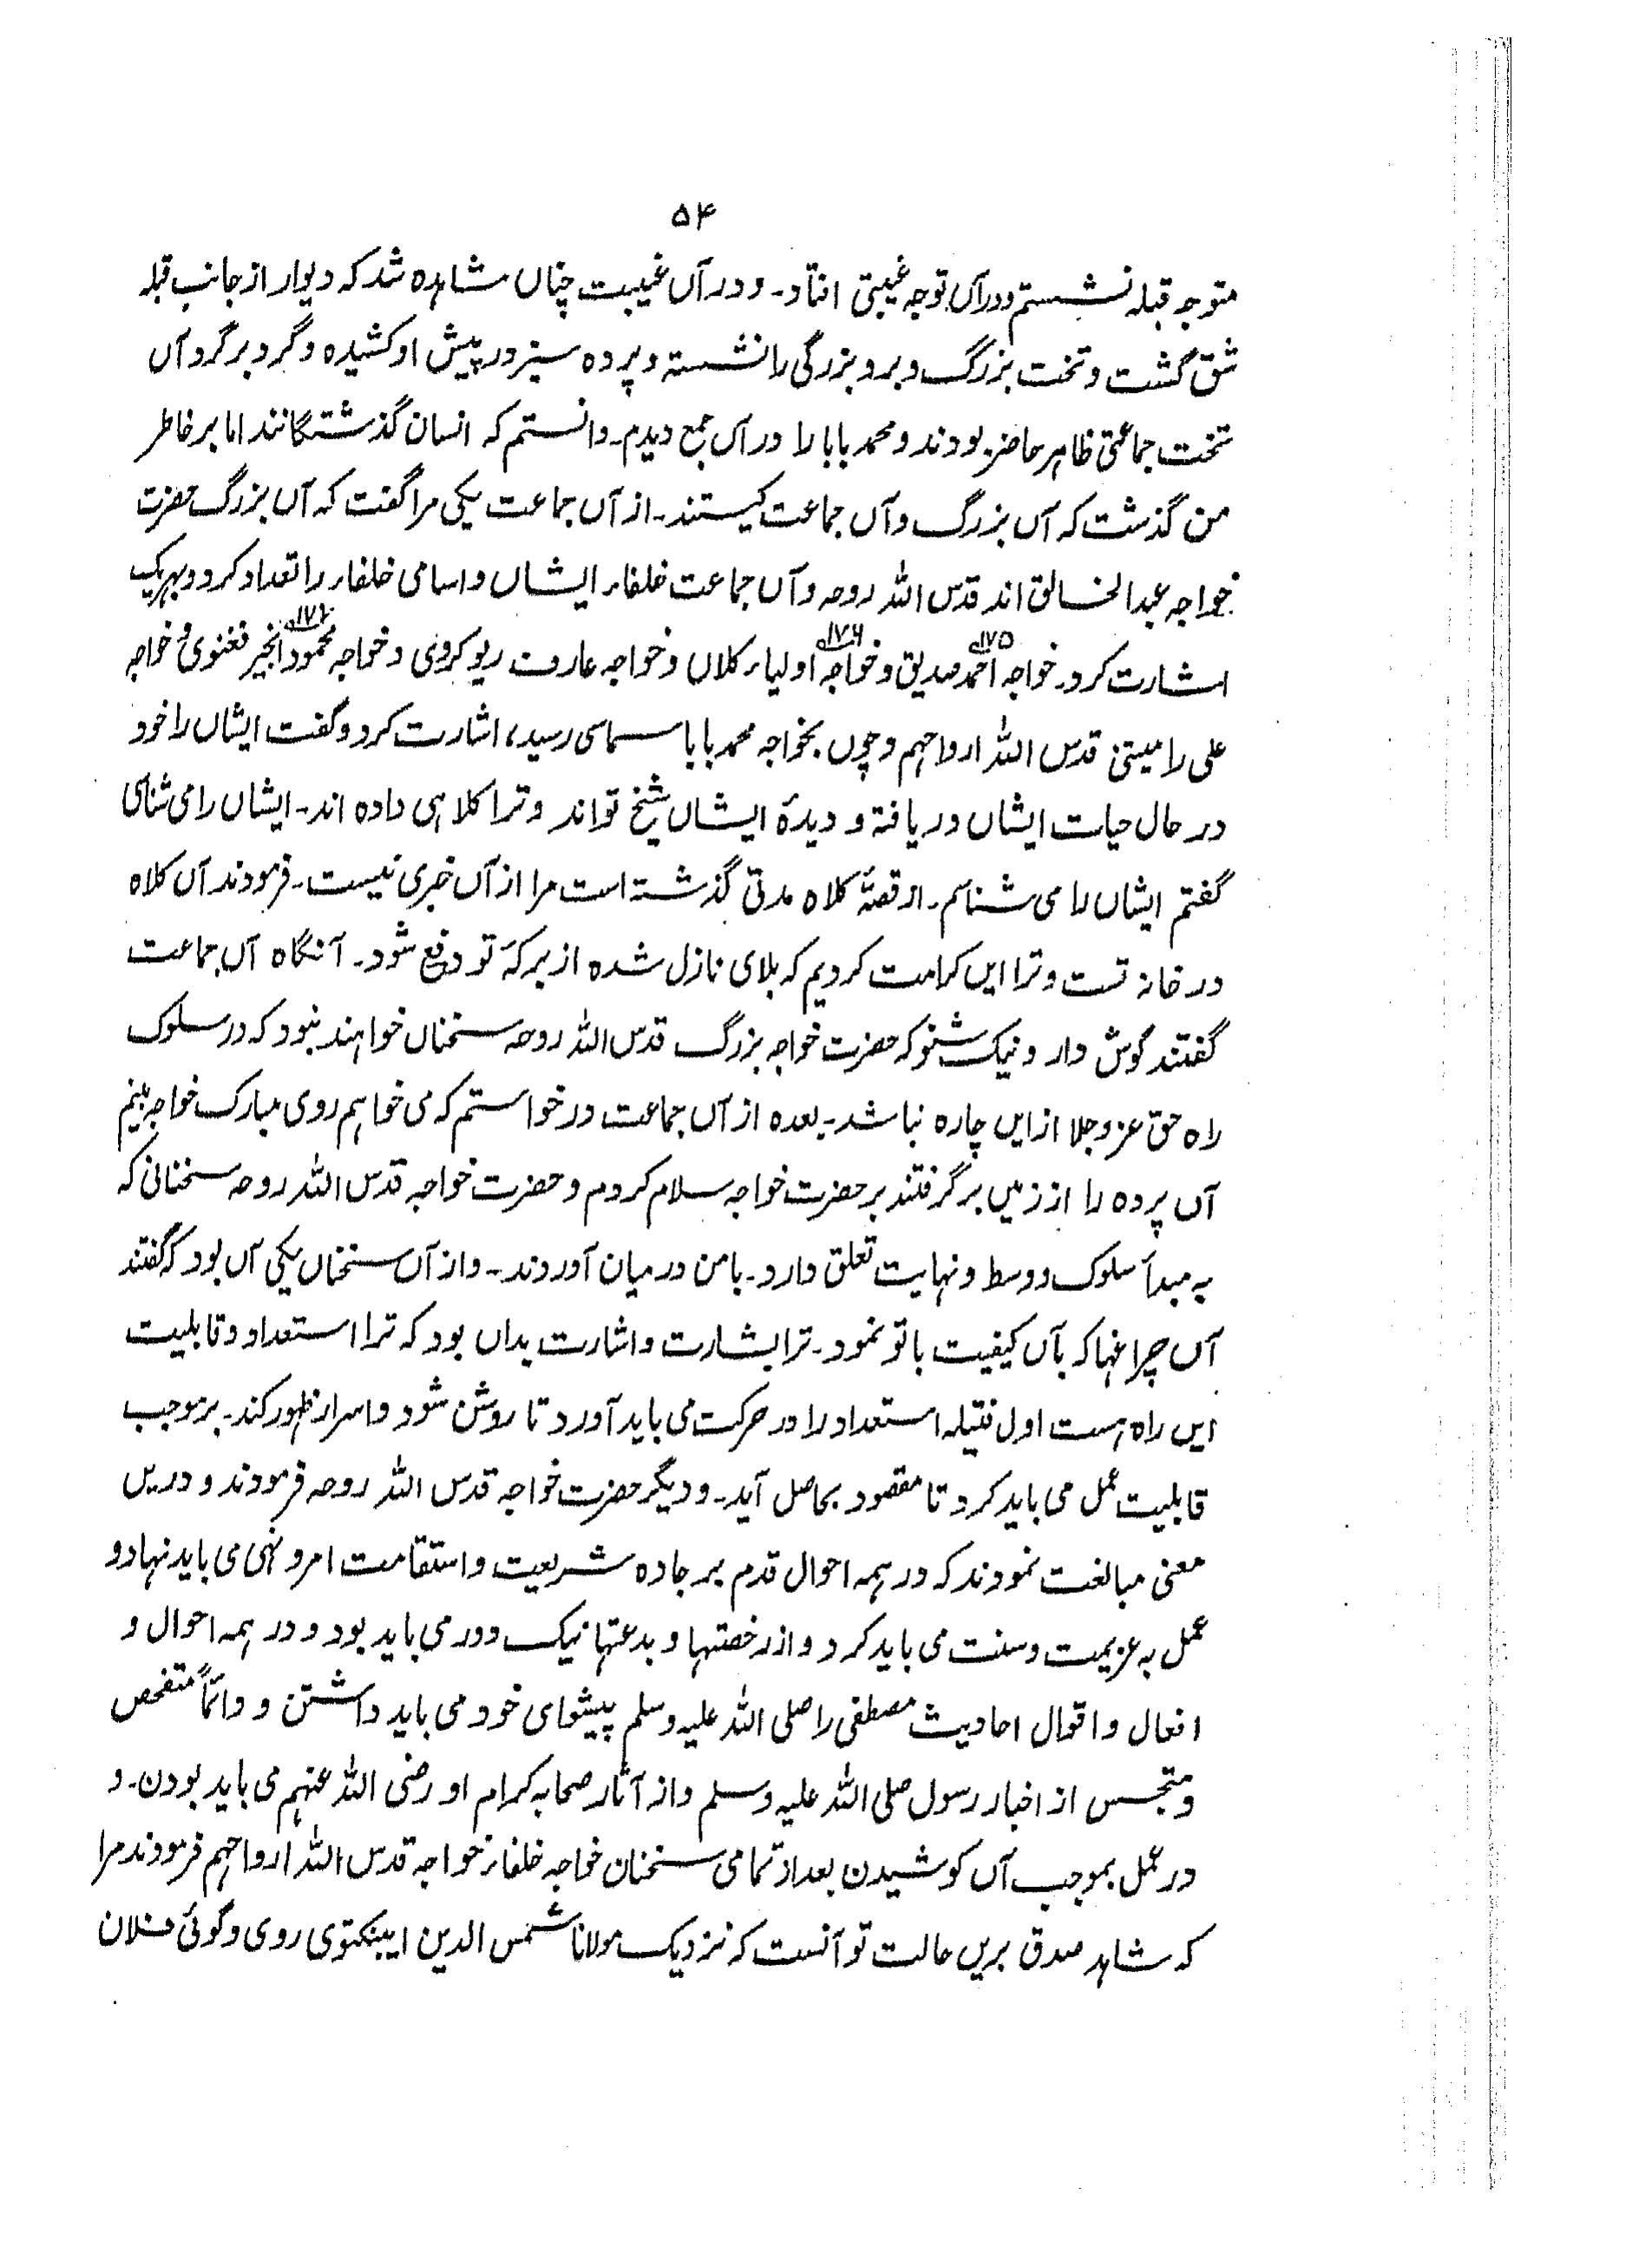 ۵۴
متوجہ قبلہ نشستم ودرآں توجہ غیبتی افتاد۔ ودر آں غیبت چناں مشاہدہ شد کہ دیوار از جانب قبلہ
شق گشت وتخت بزرگ وبرو بزرگی را نشستہ وپردہ سبز در پیش او کشیدہ وگرد برگرد آں
تخت جماعتی ظاہر حاضر بودند ومحمد بابا را در آں جمع دیدم۔ دانستم کہ انسان گذشتگانند اما بر خاطر
من گذشت کہ آں بزرگ وآں جماعت کیستند۔ از آں جماعت یکی مرا گفت کہ آں بزرگ حضرت
خواجہ عبدالخالق اند قدس اللہ روحہ وآں جماعت خلفاء ایشاں واسامی خلفاء را تعداد کرد وبہریک
اشارت کرد۔ خواجہ احمد صدیق ۱۷۵ وخواجہ ۱۷۶ اولیاء کلاں وخواجہ عارف ریوکروی وخواجہ محمود انجیر فغنوی وخواجہ
علی رامیتنی قدس اللہ ارواحہم وچوں بخواجہ محمد بابا سماسی رسید، اشارت کرد وگفت ایشاں را خود
در حال حیات ایشاں دریافتہ و دیدۂ ایشاں شیخ تو اند وترا کلاہی دادہ اند۔ ایشاں را می شناسی
گفتم ایشاں را می شناسم۔ از قصۂ کلاہ مدتی گذشتہ است مرا از آں خبری نیست۔ فرمودند آں کلاہ
در خانہ تست وترا ایں کرامت کردیم کہ بلای نازل شدہ از برکۂ تو دفع شود۔ آنگاہ آں جماعت
گفتند گوش دار ونیک شنو کہ حضرت خواجہ بزرگ قدس اللہ روحہ سخناں خواہند نبود کہ در سلوک
راہ حق عز وجلا از ایں چارہ نباشد۔ بعدہ از آں جماعت درخواستم کہ می خواہم روی مبارک خواجہ بینم
آں پردہ را از زمیں برگرفتند بر حضرت خواجہ سلام کردم وحضرت خواجہ قدس اللہ روحہ سخنانی کہ
بہ مبدأ سلوک ووسط ونہایت تعلق دارد۔ با من درمیان آوردند۔ واز آں سخناں یکی آں بود کہ گفتند
آں چراغہا کہ بآں کیفیت باتو نمود۔ ترا بشارت واشارت بداں بود کہ ترا استعداد وقابلیت
ایں راہ ہست اول فتیلہ استعداد را در حرکت می باید آورد تا روشن شود واسرار ظہور کند۔ بر موجب
قابلیت عمل می باید کرد تا مقصود بحاصل آید۔ ودیگر حضرت خواجہ قدس اللہ روحہ فرمودند ودریں
معنی مبالغت نمودند کہ در ہمہ احوال قدم بر جادہ شریعت واستقامت امر ونہی می باید نہاد و
عمل بہ عزیمت وسنت می باید کرد واز رخصتہا وبدعتہا نیک دور می باید بود ودر ہمہ احوال و
افعال واقوال احادیث مصطفی را صلی اللہ علیہ وسلم پیشوای خود می باید داشتن ودائماً متفحص
ومتجسس از اخبار رسول صلی اللہ علیہ وسلم واز آثار صحابہ کرام او رضی اللہ عنہم می باید بودن۔ و
در عمل بموجب آں کوشیدن بعد از تمامی سخنان خواجہ خلفاء خواجہ قدس اللہ ارواحہم فرمودند مرا
کہ شاہد صدق بریں حالت تو آنست کہ نزدیک مولانا شمس الدین ایبنکتوی روی وگوئی فلان